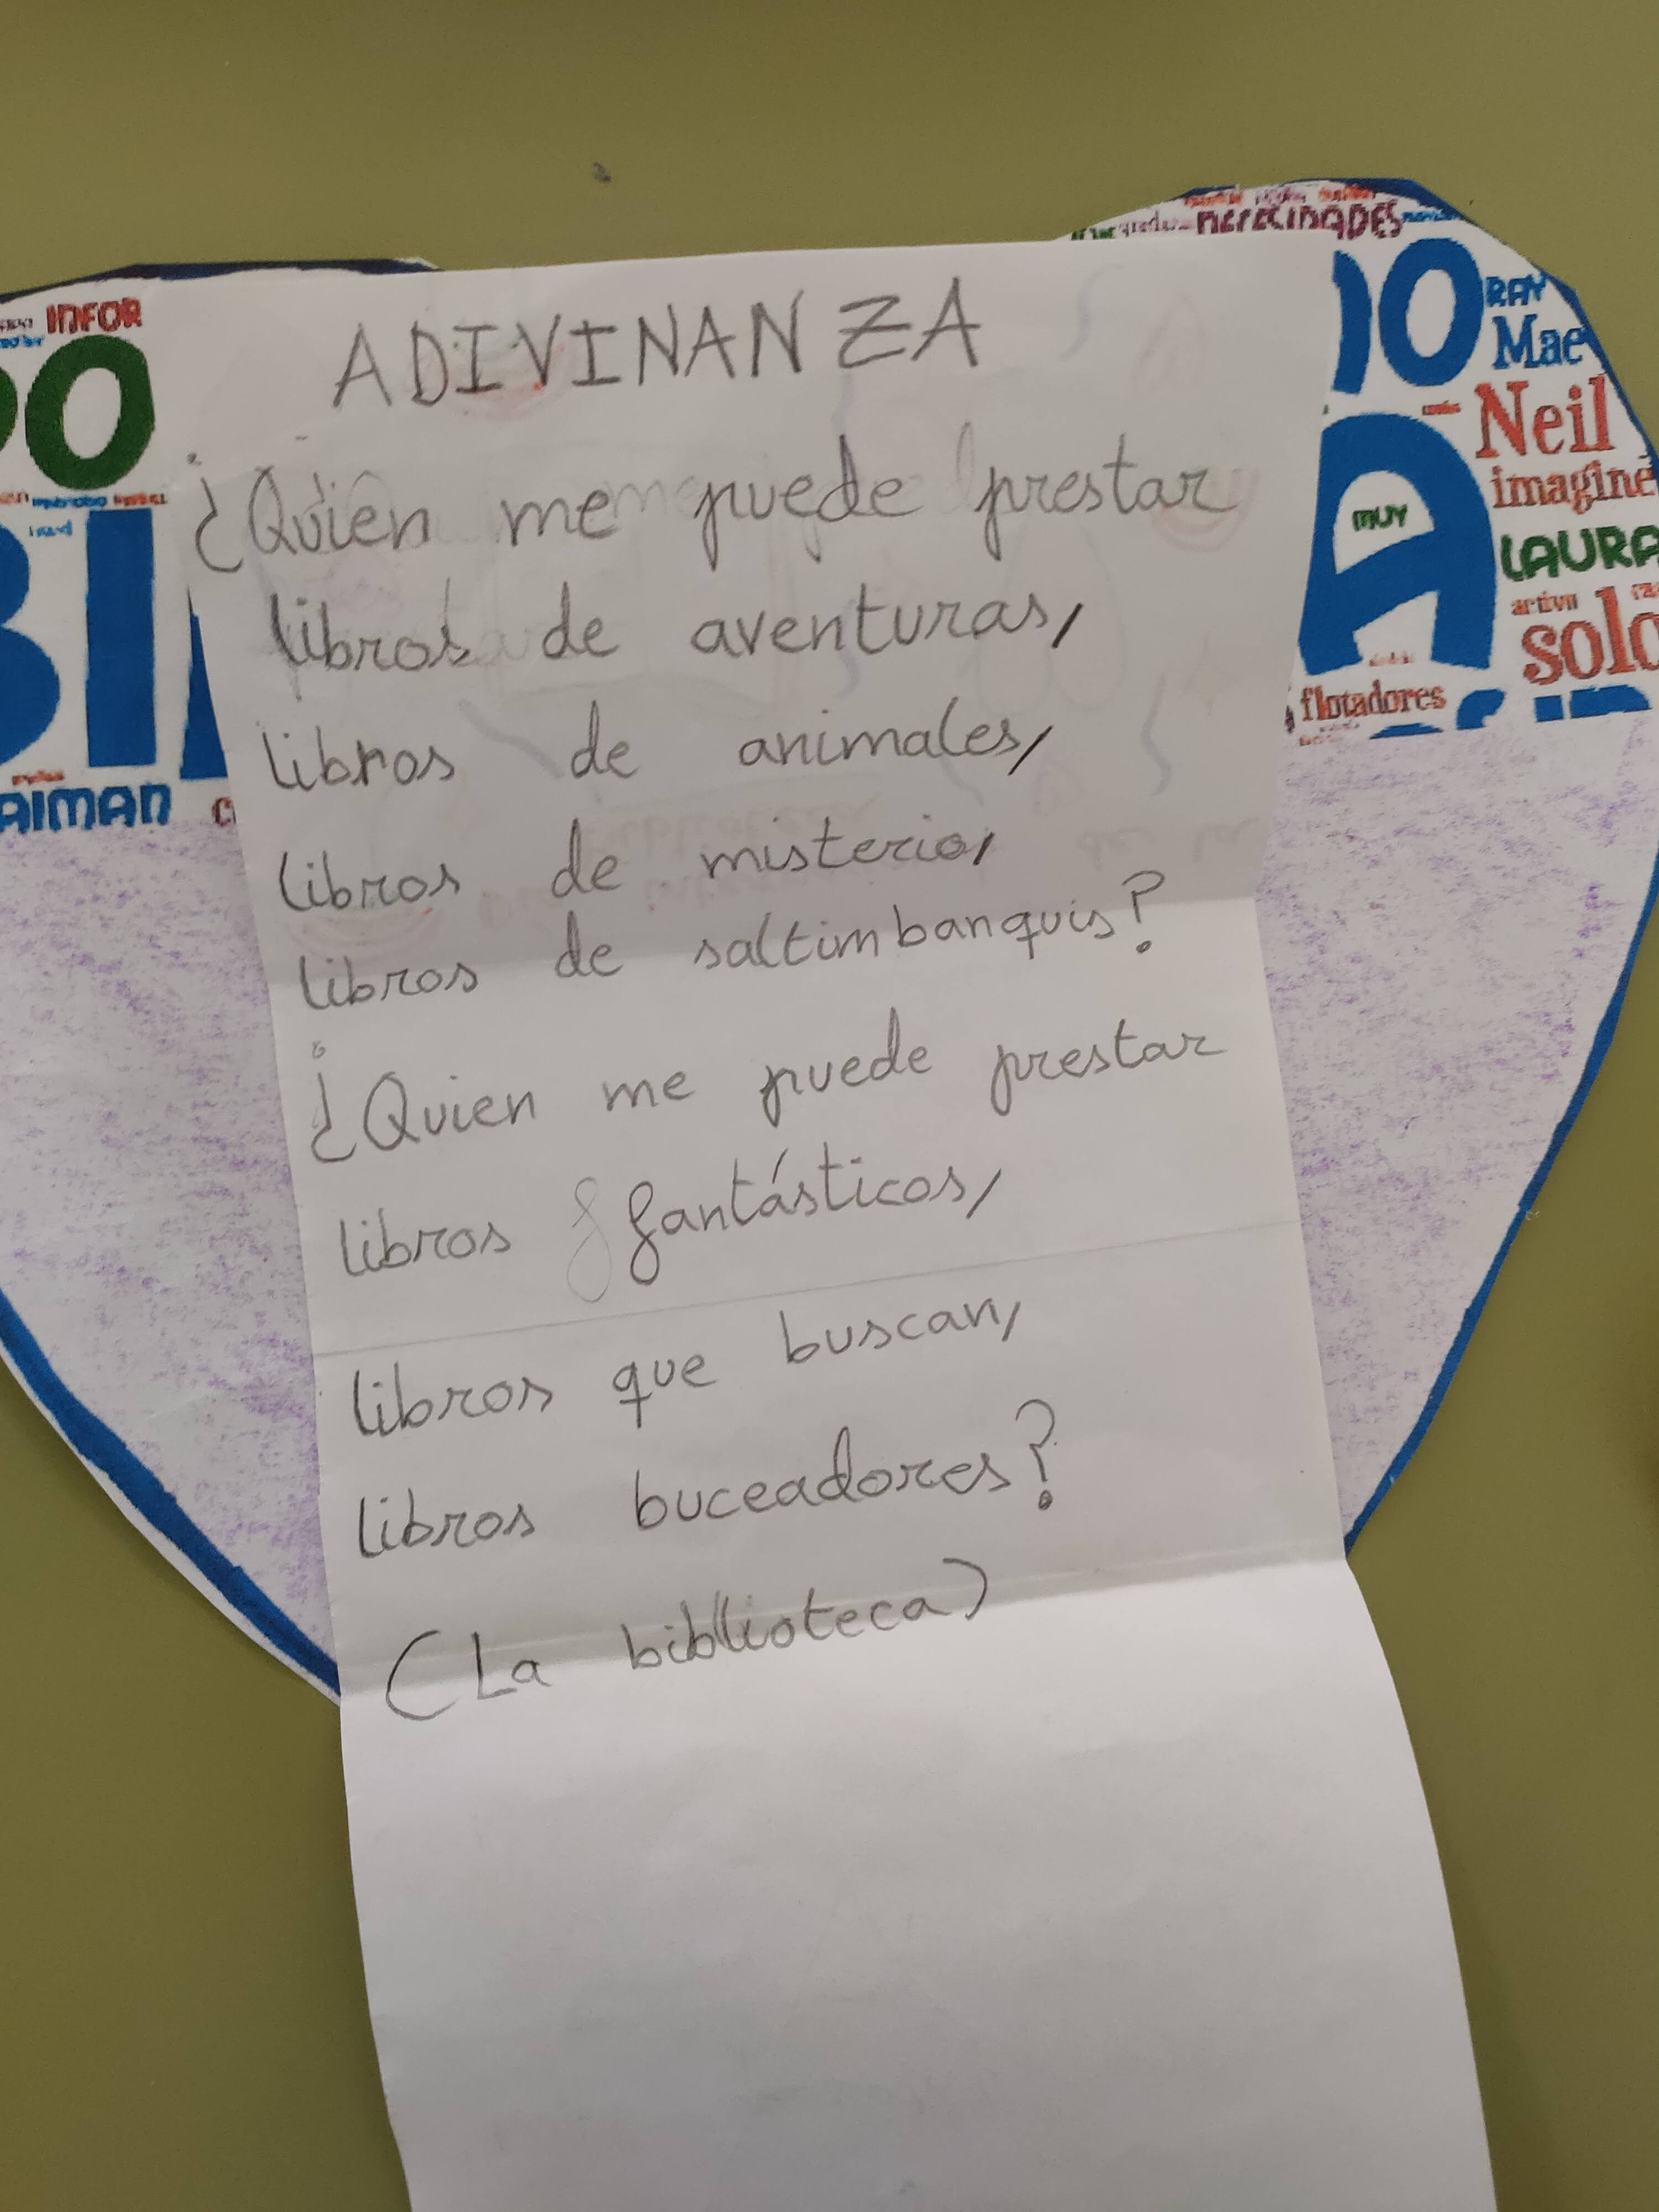 ADIVINANZA
¿Quien me puede prestar
libros de aventuras,
libros de animales,
libros de misterio,
libros de saltimbanquis?
¿Quien me puede prestar
libros fantásticos,
libros que buscan,
libros buceadores?
(La biblioteca)
INFOR
DO
BI
AIMAN
NECESIDADES
DO
RAY
Mae
Neil
imagine
A
MUY
LAURA
activo
solo
flotadores